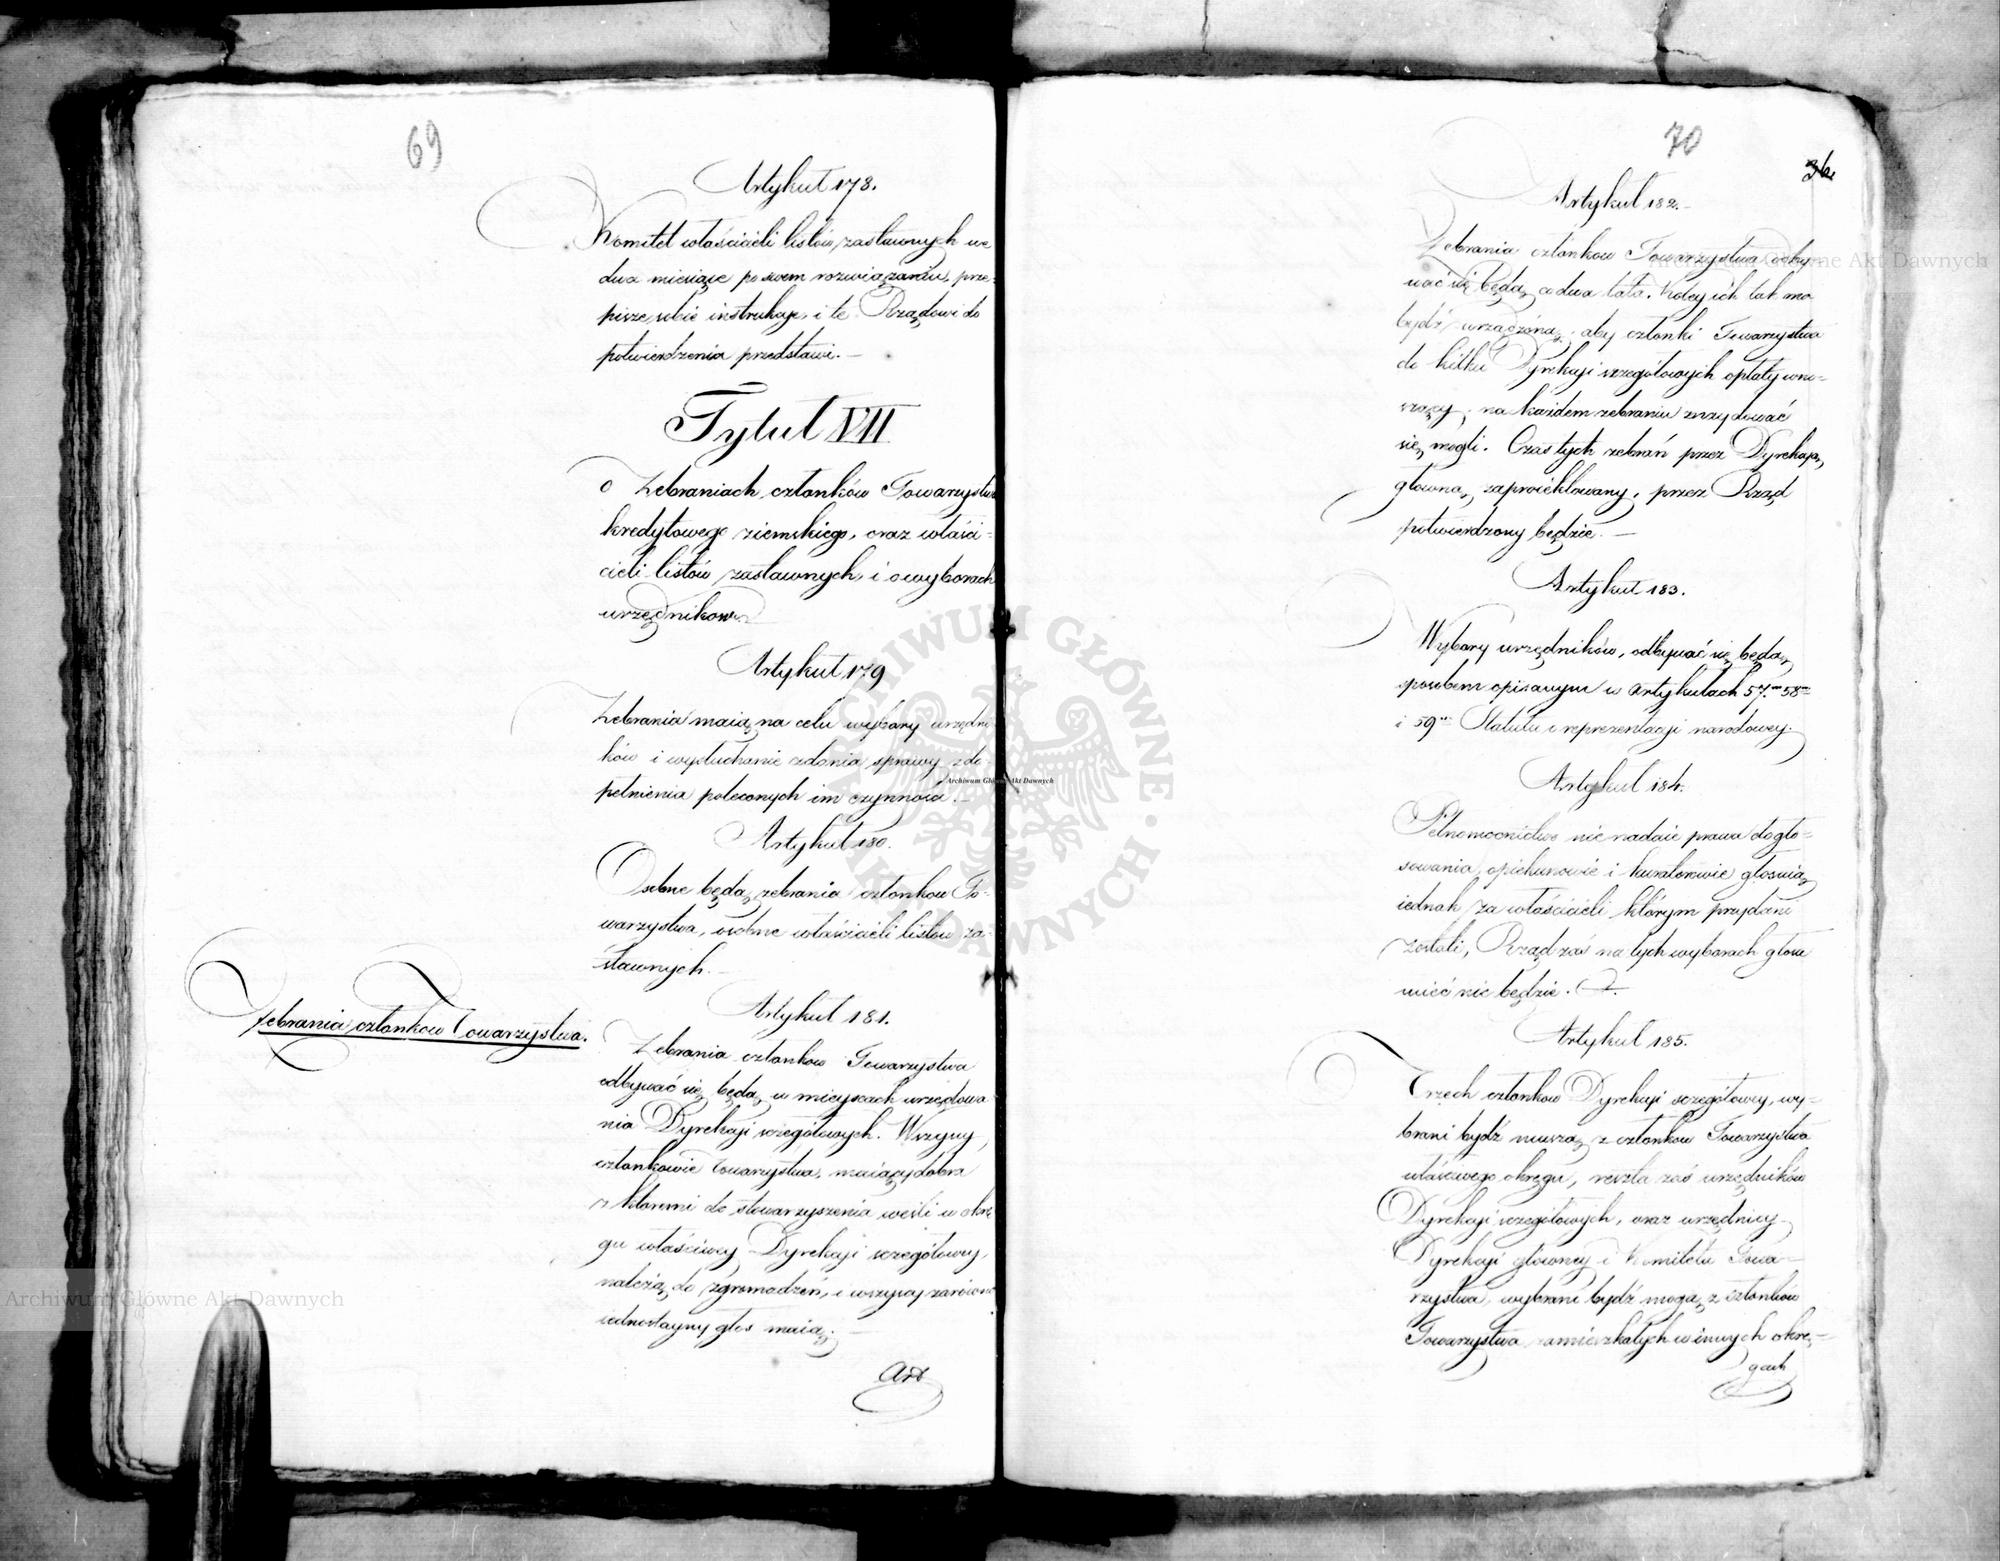 69
Artykuł 178.
Komitet właścicieli listów zastawnych we
dwa miesiące po swem rozwiązaniu, prze-
pisze sobie instrukcje, i te Rządowi do
potwierdzenia przedstawi. —
Tytuł VII
o Zebraniach członków Towarzystwa
kredytowego ziemskiego, oraz właści-
cieli listów zastawnych, i o wyborach
urzędników
Artykuł 179
Zebrania maią na celu wybory urzędni-
ków i wysłuchanie zdania sprawy z do-
pełnienia poleconych im czynności. —
Artykuł 180.
Osobne będą zebrania członków To-
warzystwa, osobne właścicieli listów za-
stawnych. —
Artykuł 181.
Zebrania członków Towarzystwa.
Zebrania członków Towarzystwa
odbywać się będą w mieyscach urzędowa-
nia Dyrekcji szczegółowych. Wszyscy
członkowie Towarzystwa, maiący dobra
z któremi do stowarzyszenia weszli w okrę-
gu właściwey Dyrekcji szczegółowey,
należą do zgromadzeń, i wszyscy zarówno
iednostayny głos maią. —
Art
70
36.
Artykuł 182. —
Zebrania członków Towarzystwa odby-
wać się będą co dwa lata. Koley ich tak ma
bydź urządzoną, aby członki Towarzystwa
do kilku Dyrekcji szczegółowych opłaty wno-
szący, na każdem zebraniu znaydować
się mogli. Czas tych zebrań przez Dyrekcją
główną zaproiektowany, przez Rząd
potwierdzony będzie. —
Artykuł 183.
Wybory urzędników, odbywać się będą
sposobem opisanym w Artykułach 57.ym 58ym
i 59ym Statutu o reprezentacji narodowey.
Artykuł 184.
Pełnomocnictwo nie nadaie prawa do gło-
sowania, opiekunowie i kuratorowie głosuią
iednak za właścicieli którym przydani
zostali, Rząd zaś na tych wyborach głosu
mieć nie będzie.
Artykuł 185.
Trzech członków Dyrekcji szczegółowey, wy-
brani bydź muszą z członków Towarzystwa
właściwego okręgu, reszta zaś urzędników
Dyrekcji szczegółowych, oraz urzędnicy
Dyrekcji główney i Komitetu Towa-
rzystwa, wybrani bydź mogą z członków
Towarzystwa zamieszkałych w innych okrę-
gach
Archiwum Główne Akt Dawnych
ARCHIWUM GŁÓWNE AKT DAWNYCH
Archiwum Główne Akt Dawnych
Archiwum Główne Akt Dawnych